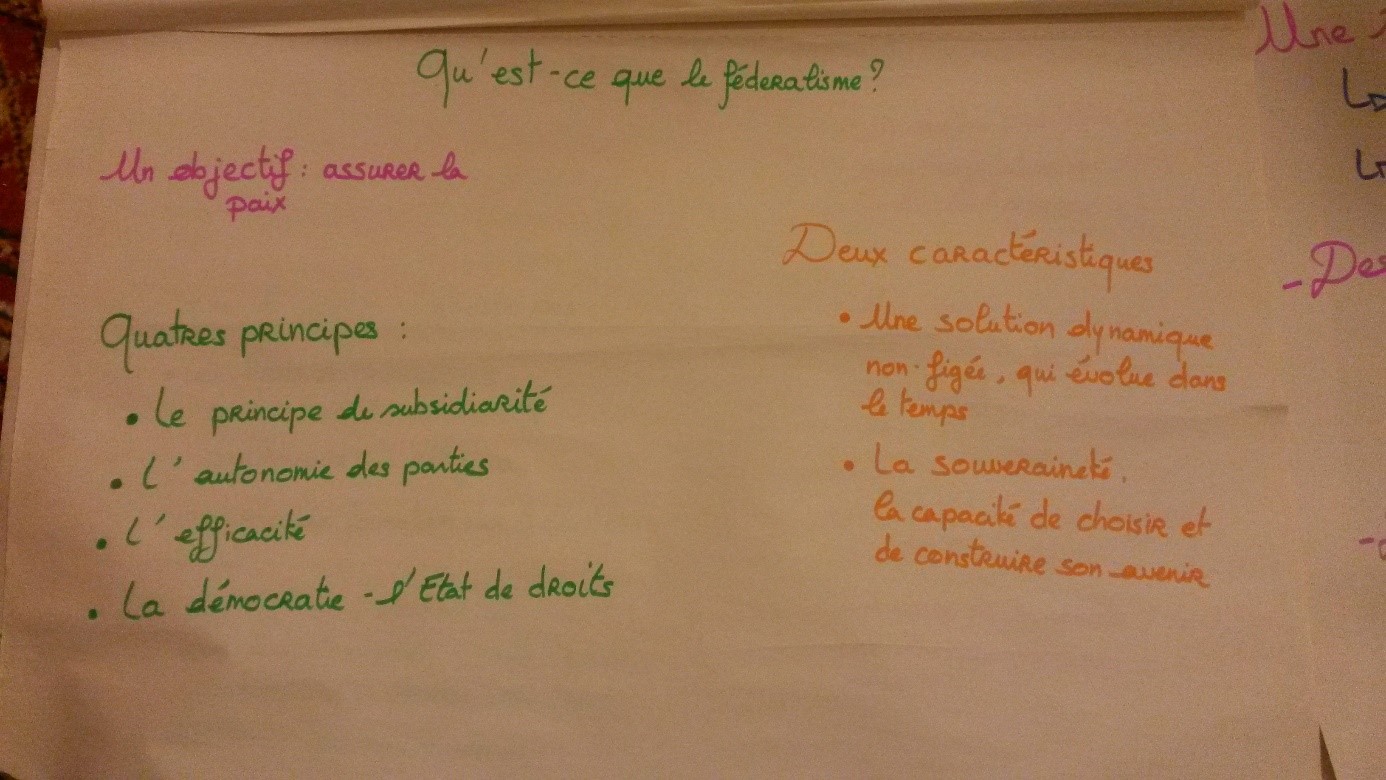 Qu'est-ce que le féderalisme?
Un objectif : assurer la
paix
Quatres principes :
• Le principe de subsidiarité
• L'autonomie des parties
• L'efficacité
• La démocratie - l'Etat de droits
Deux caractéristiques
• Une solution dynamique
non-figée, qui évolue dans
le temps
• La souveraineté.
la capacité de choisir et
de construire son avenir
Une
- Des